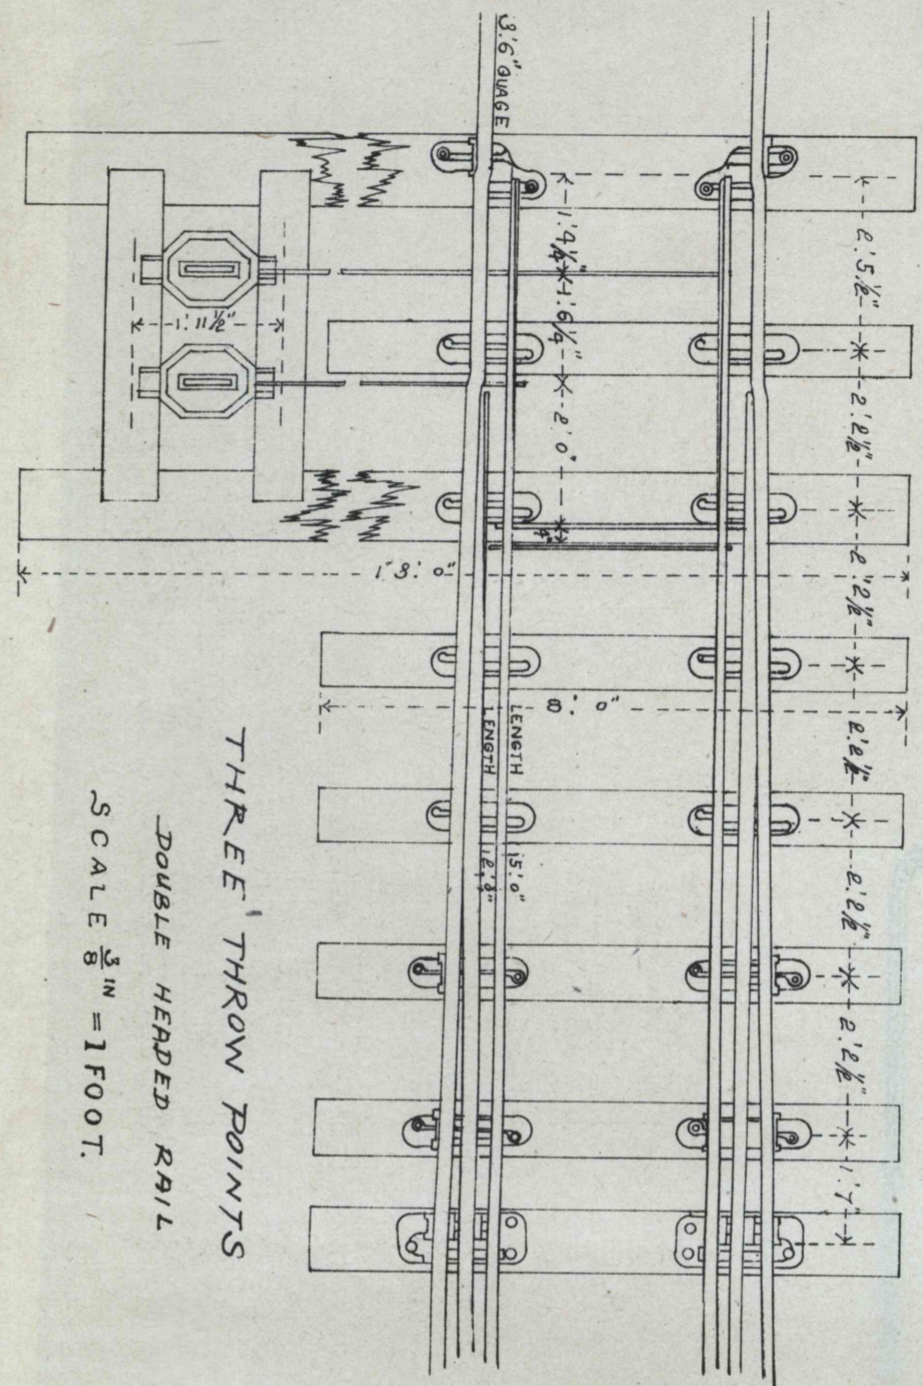 3'.6" QUAGE
2'.5½"
2'.2½"
2'.2½"
2'.2½"
2'.2½"
2'.2½"
1'.7"
1'.6¼"
2'.0"
4"
1'.11½"
13'.0"
8'.0"
LENGTH 15'.0"
LENGTH 12'.8"
THREE THROW POINTS
DOUBLE HEADED RAIL
SCALE ⅜ IN = 1 FOOT.